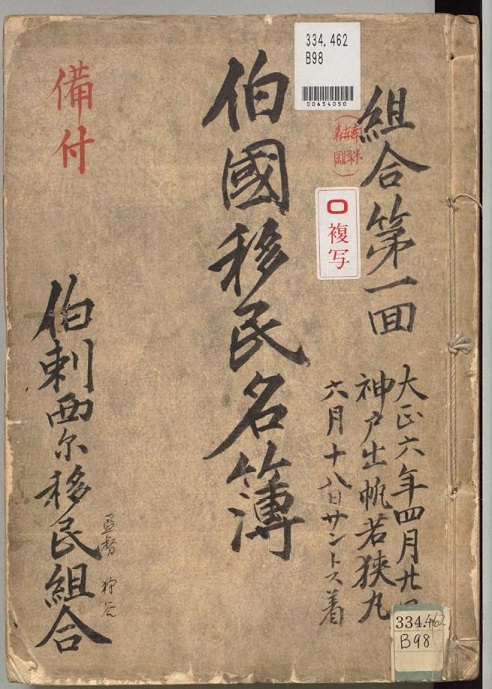 組合第一回
大正六年四月廿
神戸出帆若狭丸
六月十八日サントス着
伯國移民名簿
備付
伯剌西尓移民組合
監督 狩谷
334.462
B98
00454050
複写
334.462
B98